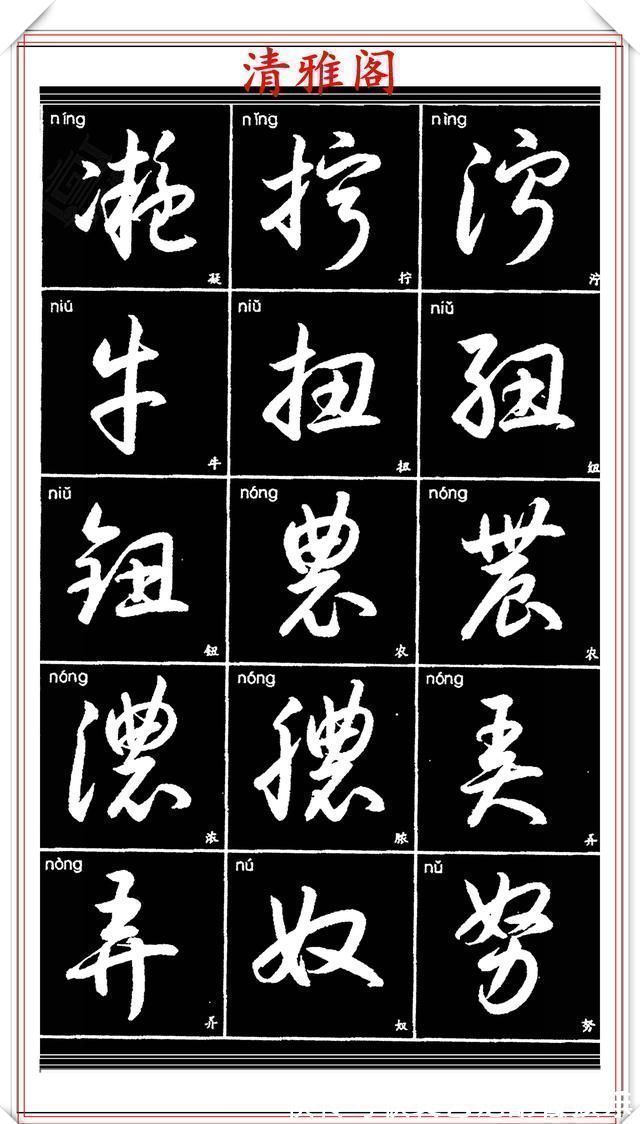 清雅阁
níng nǐng nìng
凝 拧 泞
凝 拧 泞
niú niǔ niǔ
牛 扭 紐
牛 扭 纽
niǔ nóng nóng
鈕 農 農
钮 农 农
nóng nóng nóng
濃 膿 弄
浓 脓 弄
nòng nú nǔ
弄 奴 努
弄 奴 努